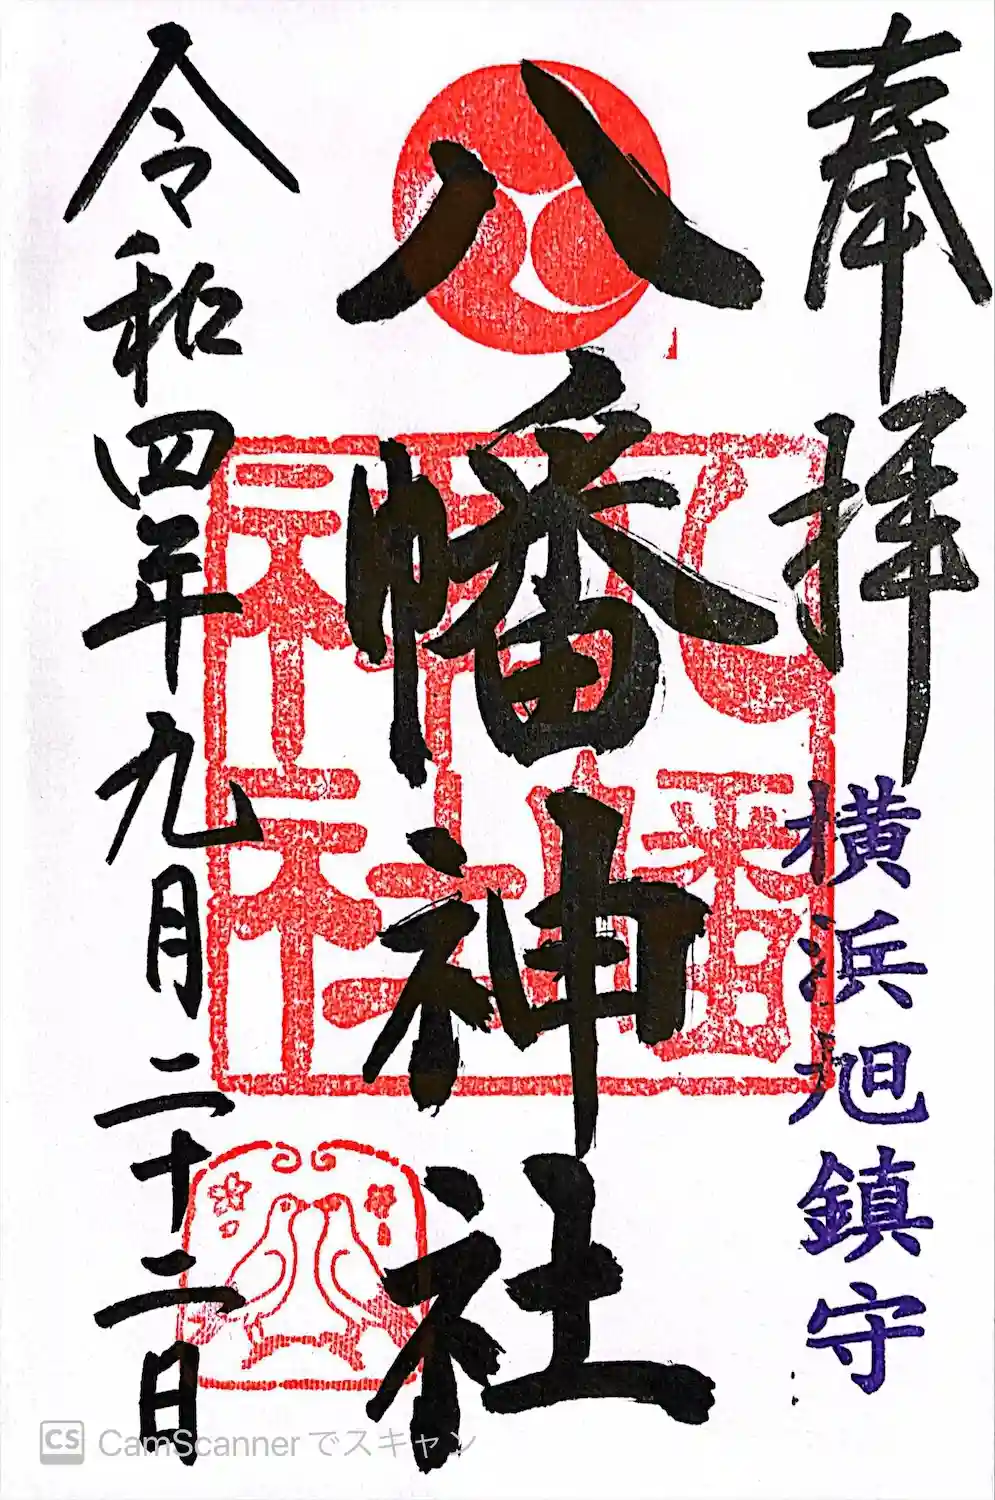 奉拝
横浜旭鎮守
八幡神社
八幡神社
令和四年九月二十二日
CS CamScannerでスキャン